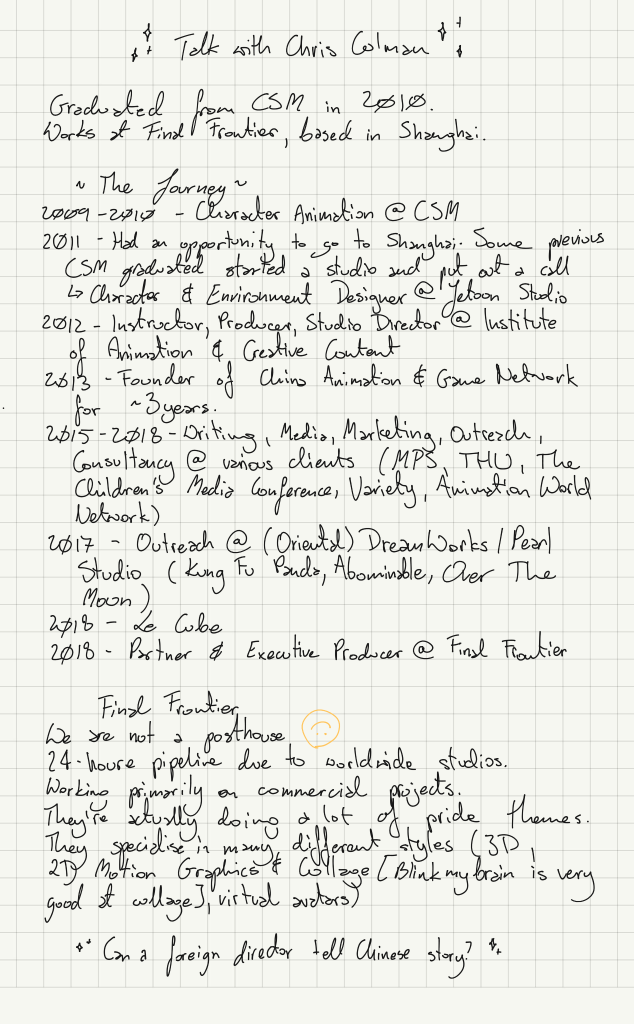 Talk with Chris Colman
Graduated from CSM in 2010.
Works at Final Frontier, based in Shanghai.
~ The Journey ~
2009 - 2010 - Character Animation @ CSM
2011 - Had an opportunity to go to Shanghai. Some previous
CSM graduated started a studio and put out a call
↳ Character & Environment Designer @ Jetoon Studio
2012 - Instructor, Producer, Studio Director @ Institute
of Animation & Creative Content
2013 - Founder of China Animation & Game Network
for ~3 years.
2015 - 2018 - Writing, Media, Marketing, Outreach,
Consultancy @ various clients (MPS, THU, The
Children's Media Conference, Variety, Animation World
Network)
2017 - Outreach @ (Oriental) DreamWorks / Pearl
Studio (Kung Fu Panda, Abominable, Over The
Moon)
2018 - Le Cube
2018 - Partner & Executive Producer @ Final Frontier
Final Frontier
We are not a posthouse
24-houre pipeline due to worldwide studios.
Working primarily on commercial projects.
They're actually doing a lot of pride themes.
They specialise in many different styles (3D,
2D, Motion Graphics & Collage [Blinkmybrain is very
good at collage], virtual avatars)
Can a foreign director tell Chinese story?